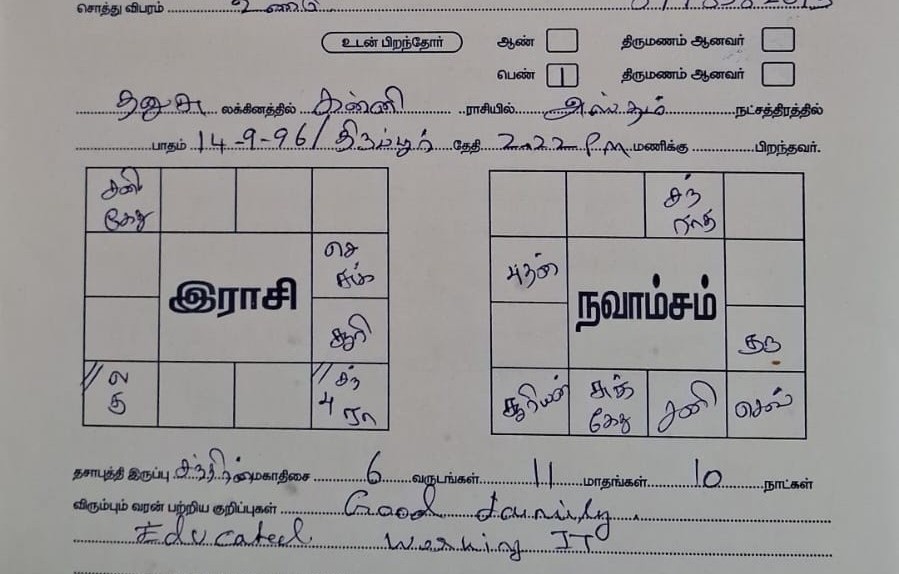 சொத்து விபரம்
உடன் பிறந்தோர் ஆண் திருமணம் ஆனவர்
பெண் 1 திருமணம் ஆனவர்
தனுசு லக்கினத்தில் கன்னி ராசியில் அஸ்தம் நட்சத்திரத்தில்
பாதம் 14-9-96 / திருப்பூர் தேதி 2.22 PM மணிக்கு பிறந்தவர்.
சனி
கேது
செ
சுக்
இராசி
சூரி
ல
சந்
பு ரா
சந்
ராகு
புதன்
நவாம்சம்
சூரியன்
சுக்
கேது
சனி
செவ்
தசாபுத்தி இருப்பு சந்திரன் மகாதிசை 6 வருடங்கள் 11 மாதங்கள் 10 நாட்கள்
விரும்பும் வரன் பற்றிய குறிப்புகள் Good family.
Educated Working IT